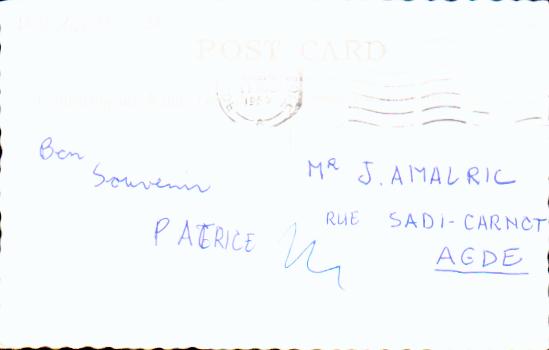 POST CARD
Bon
Souvenir
PATRICE
Mr J. AMALRIC
RUE SADI-CARNOT
AGDE